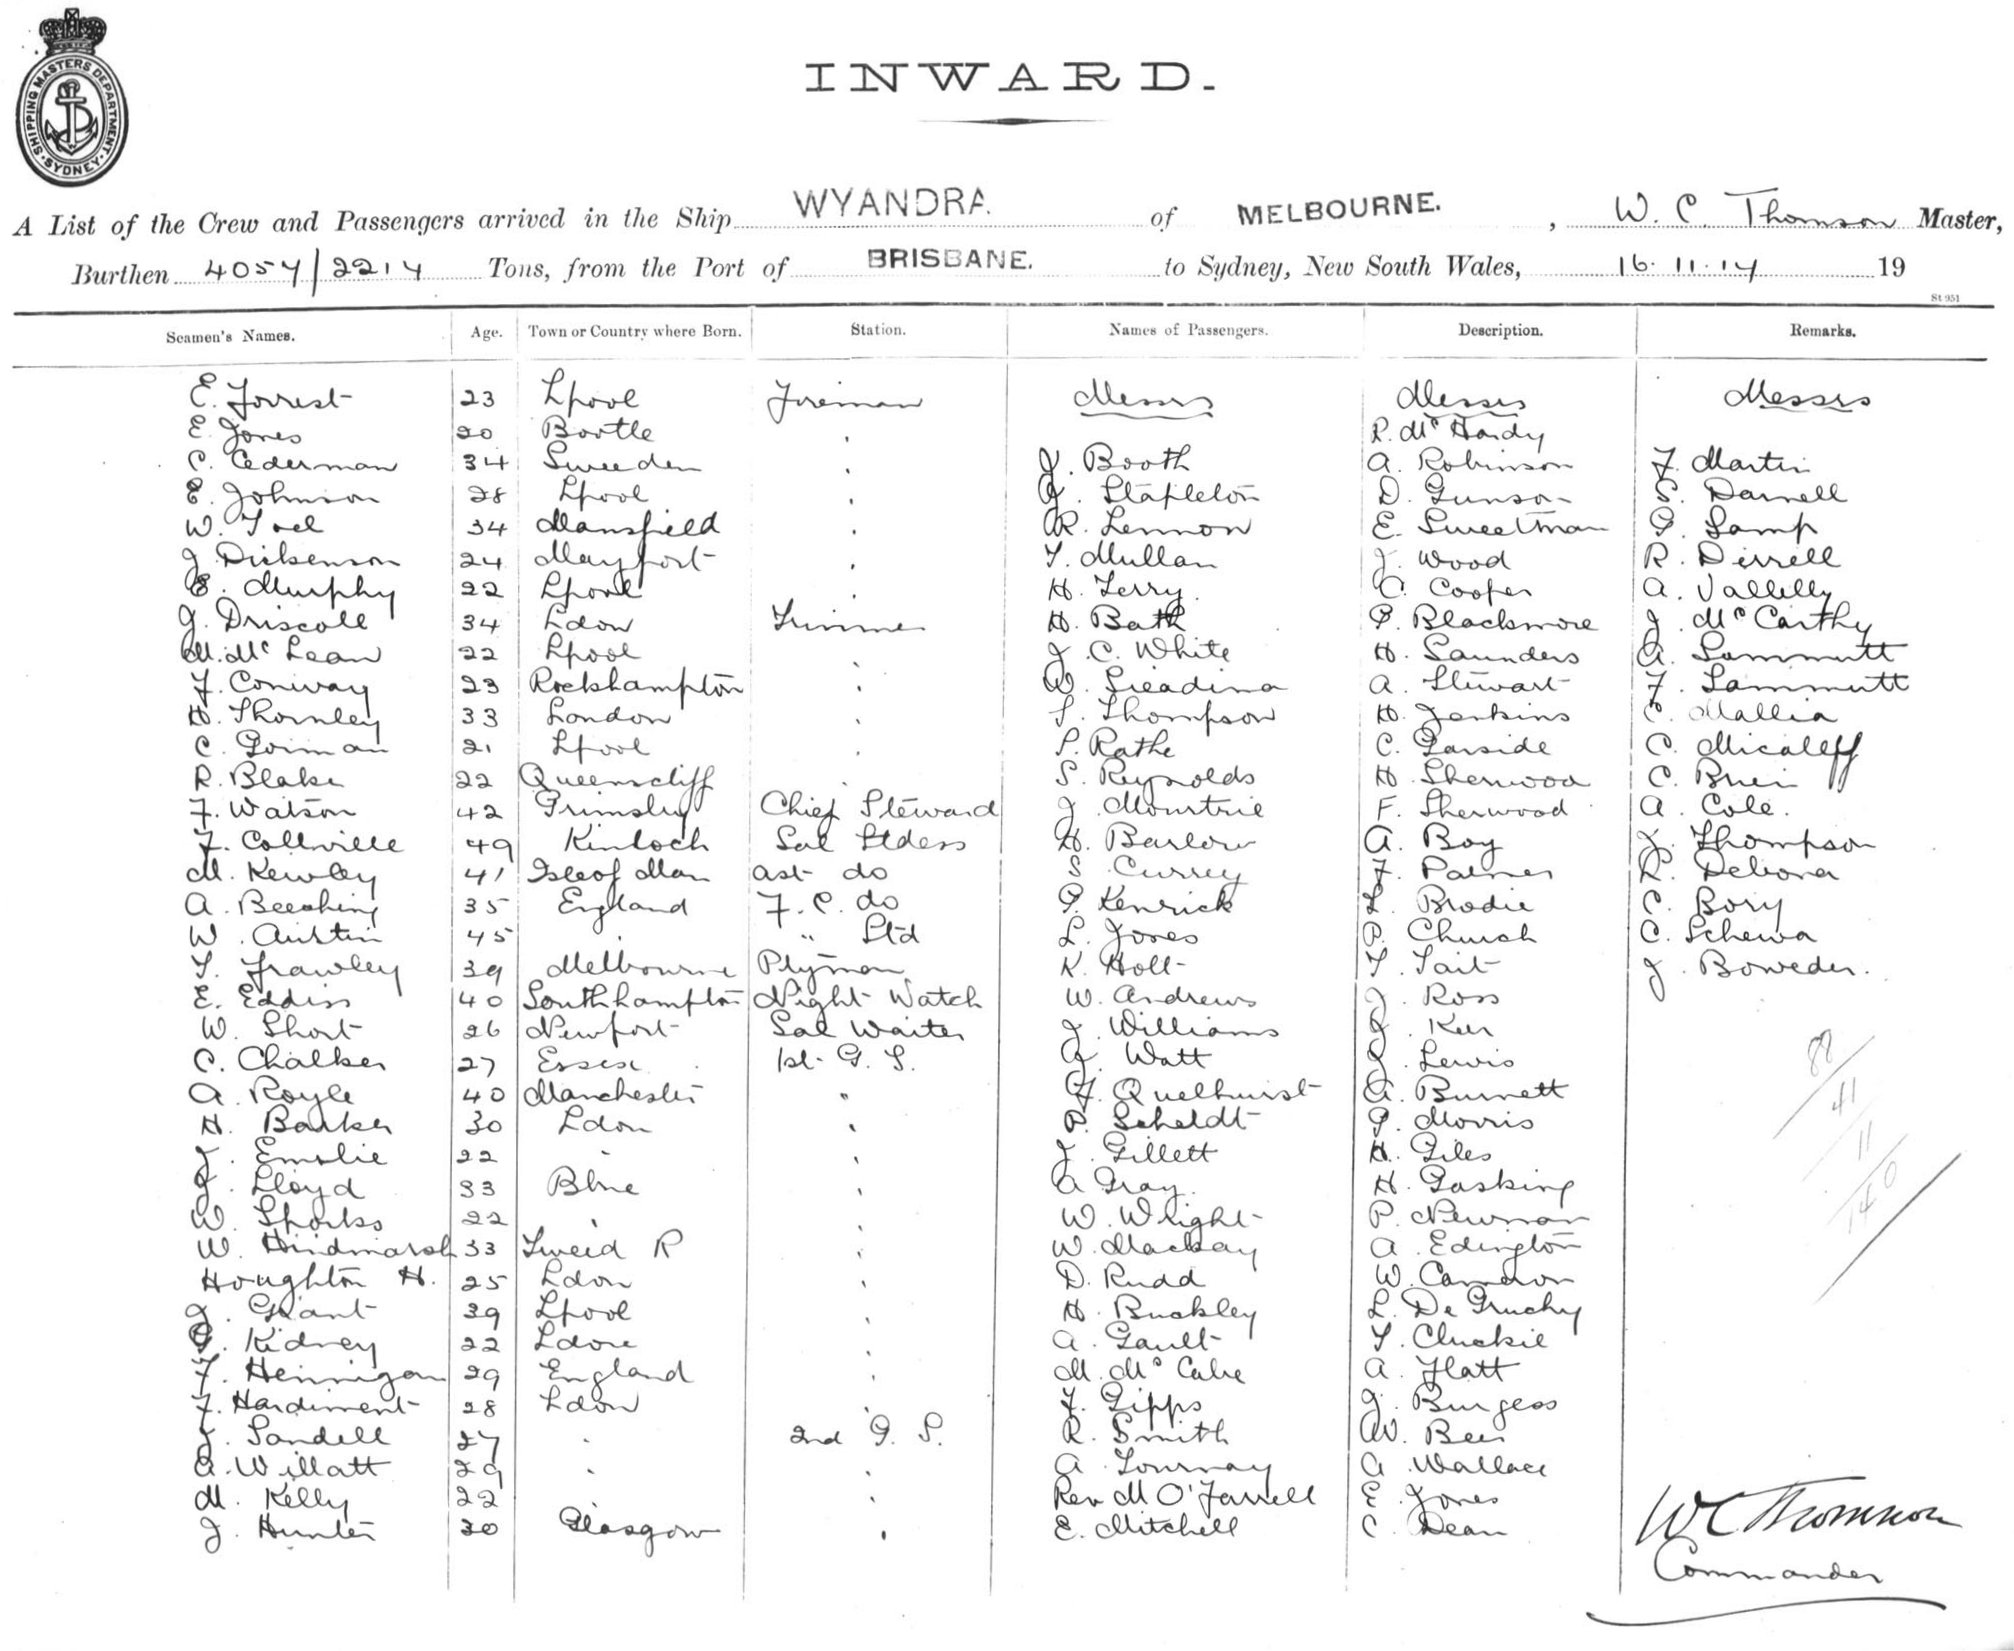 SHIPPING MASTERS DEPARTMENT. SYDNEY.
INWARD.
A List of the Crew and Passengers arrived in the Ship WYANDRA. of MELBOURNE. , W. C. Thomson Master,
Burthen 4057/2214 Tons, from the Port of BRISBANE. to Sydney, New South Wales, 16.11.14 19
St 951
Seamen's Names. Age. Town or Country where Born. Station. Names of Passengers. Description. Remarks.
E. Forrest 23 Lpool Fireman Messrs Messrs Messrs
E. Jones 20 Bootle R. McHardy
C. Cederman 34 Sweeden J. Booth A. Robinson F. Martin
E. Johnson 28 Lpool Stapleton D. Gunson S. Darnell
W. 34 Mansfield R. Lennon E. Sweetman Lamp
J. Dickenson 24 Mayport T. Mullan J. Wood R. Dirrell
E. Murphy 22 Lpool H. Terry. C. Cooper A. Vallelly
J. Driscoll 34 Ldon Trimmer H. Bath P. Blackmore J. McCarthy
M. McLean 22 Lpool J. C. White H. Saunders Sammutt
F. Conway 23 Rockhampton W. A. Stewart F. Sammutt
H. Thornley 33 London T. Thompson H. Jenkins C. Mallia
C. Gorman 21 Lpool S. Rathe C. Garside C. Micaleff
R. Blake 22 Queenscliff S. Reynolds H. Sherwood C.
F. Watson 42 Grimsby Chief Steward J. Mourtrie F. Sherwood A. Cole.
F. Collville 49 Kinloch Sal Stdess H. Barlow A. Boy J. Thompson
M. Kewley 41 Isle of Man Ast do S. Currey F. Palmer R. Debona
A. Beeching 35 England F. C. do P. Kenrick L. Brodie C. Bory
W. Austin 45 " " Std L. Jones P. Church C. Schewa
T. Frawley 39 Melbourne Plyman K. Holt T. Tait J. Boweder.
E. Eddis 40 Southhampton Night Watch W. Andrews J. Ross
W. Short 26 Newport Sal Waiter J. Williams J. Kerr
C. Chalker 27 Essex 1st G. S. Watt J. Lewis 88
A. Royle 40 Manchester " F. Quelhurst A. Burnett 41
H. Barker 30 Ldon " P. Scheldt P. Morris 11
J. Emslie 22 " " J. Gillett H. Giles 140
J. Lloyd 33 Bbne " A. Gray. H. Gasking
W. Sparks 22 " " W. Wright P. Newman
W. Hindmarsh 33 Tweed R " W. Mackay A. Edington
Houghton H. 25 Ldon " D. Rudd W. Cameron
J. Grant 39 Lpool " H. Buckley L. De Gruchy
G. Kidney 22 Ldon " A. Gault T. Cluckie
F. Hennigan 29 England " M. McCabe A. Flatt
F. Hardiment 28 Ldon " F. Gipps J. Burgess
J. Sandell 27 " 2nd G. S. R. Smith W. Beer
A. Willatt 29 " " A. Tournay A. Wallace
M. Kelly 22 " Rev M O'Farrell E. Jones
J. Hunter 30 Glasgow " E. Mitchell C. Dean
W C Thomson
Commander